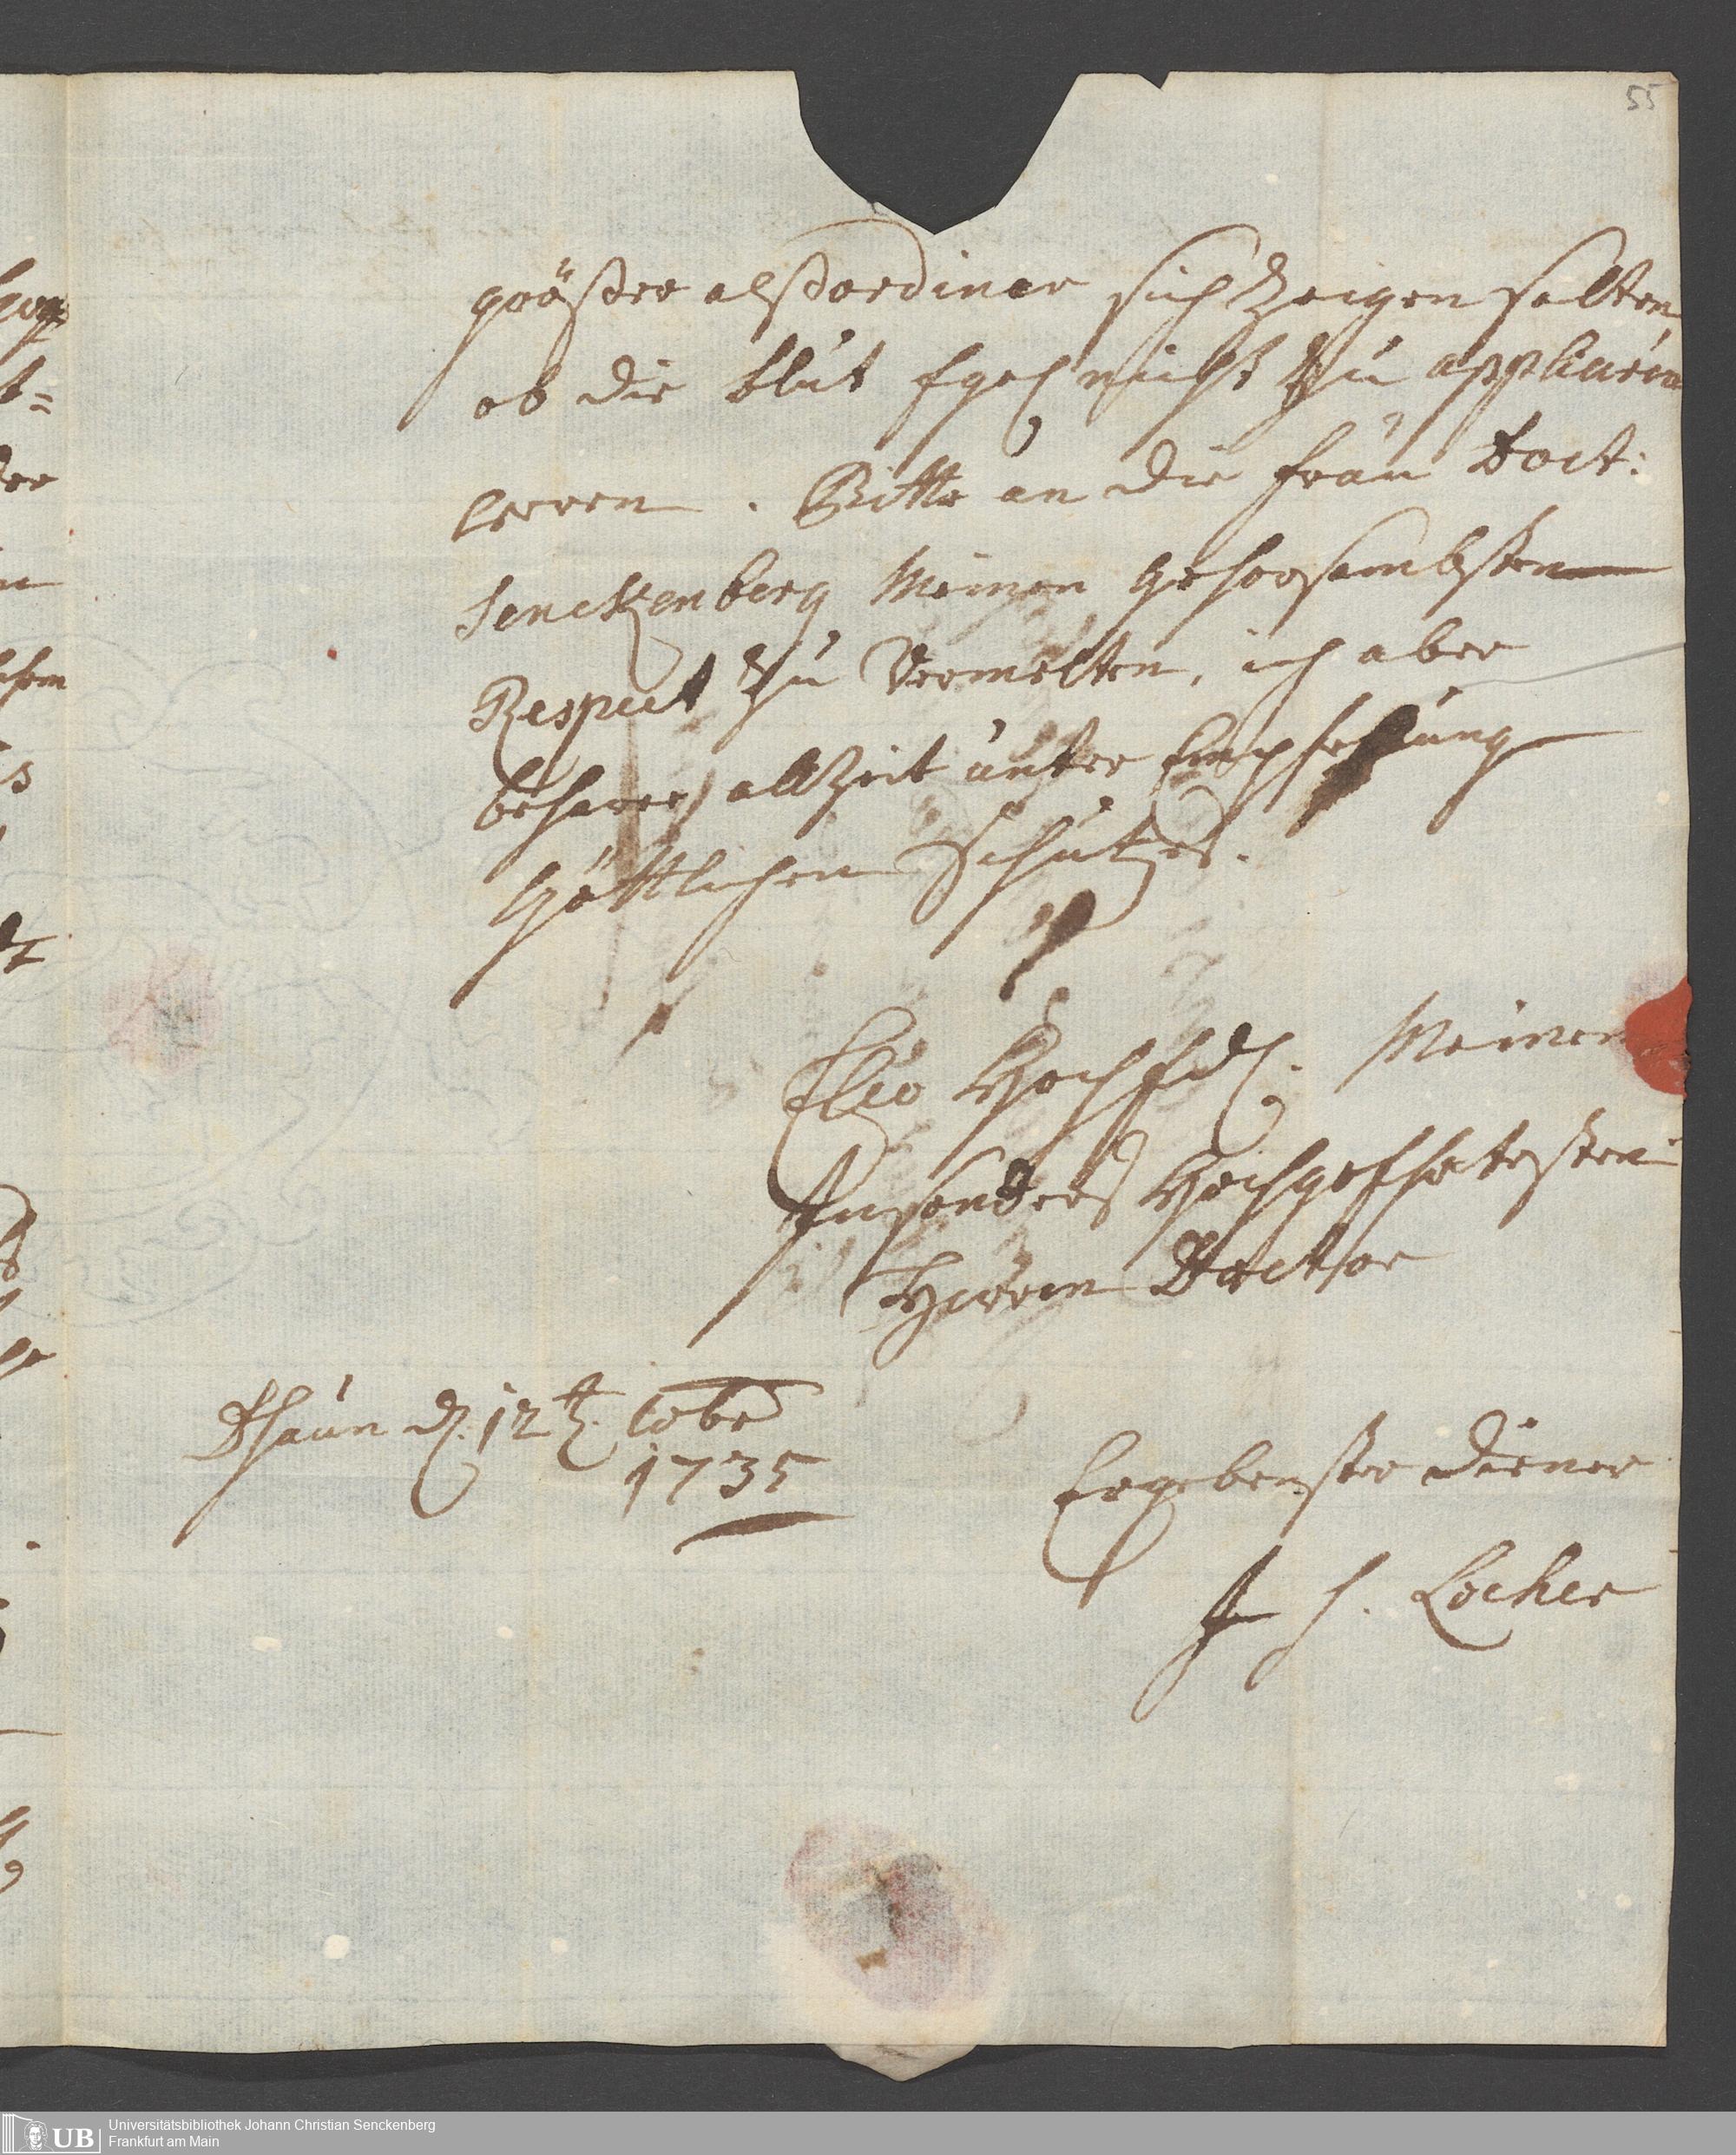 55
größer alß ordinar sich Zeigen solten
ob die blut Egel nicht zu appliciren
weren. Bitte an die frau Doct:
Senckenberg Meinen gehorsambsten
Respect zu Vermelten, ich aber
beharre allZeit unter Empfehlung
Göttlichen Schutzes.
Ew Hoch Edl. Meinen
Insonders Hochgeehrtesten
Herren Doctor
Dhaun d. 12t. 10br
1735
Ergebenster diener
J H. Locher
Universitätsbibliothek Johann Christian Senckenberg
UB
Frankfurt am Main